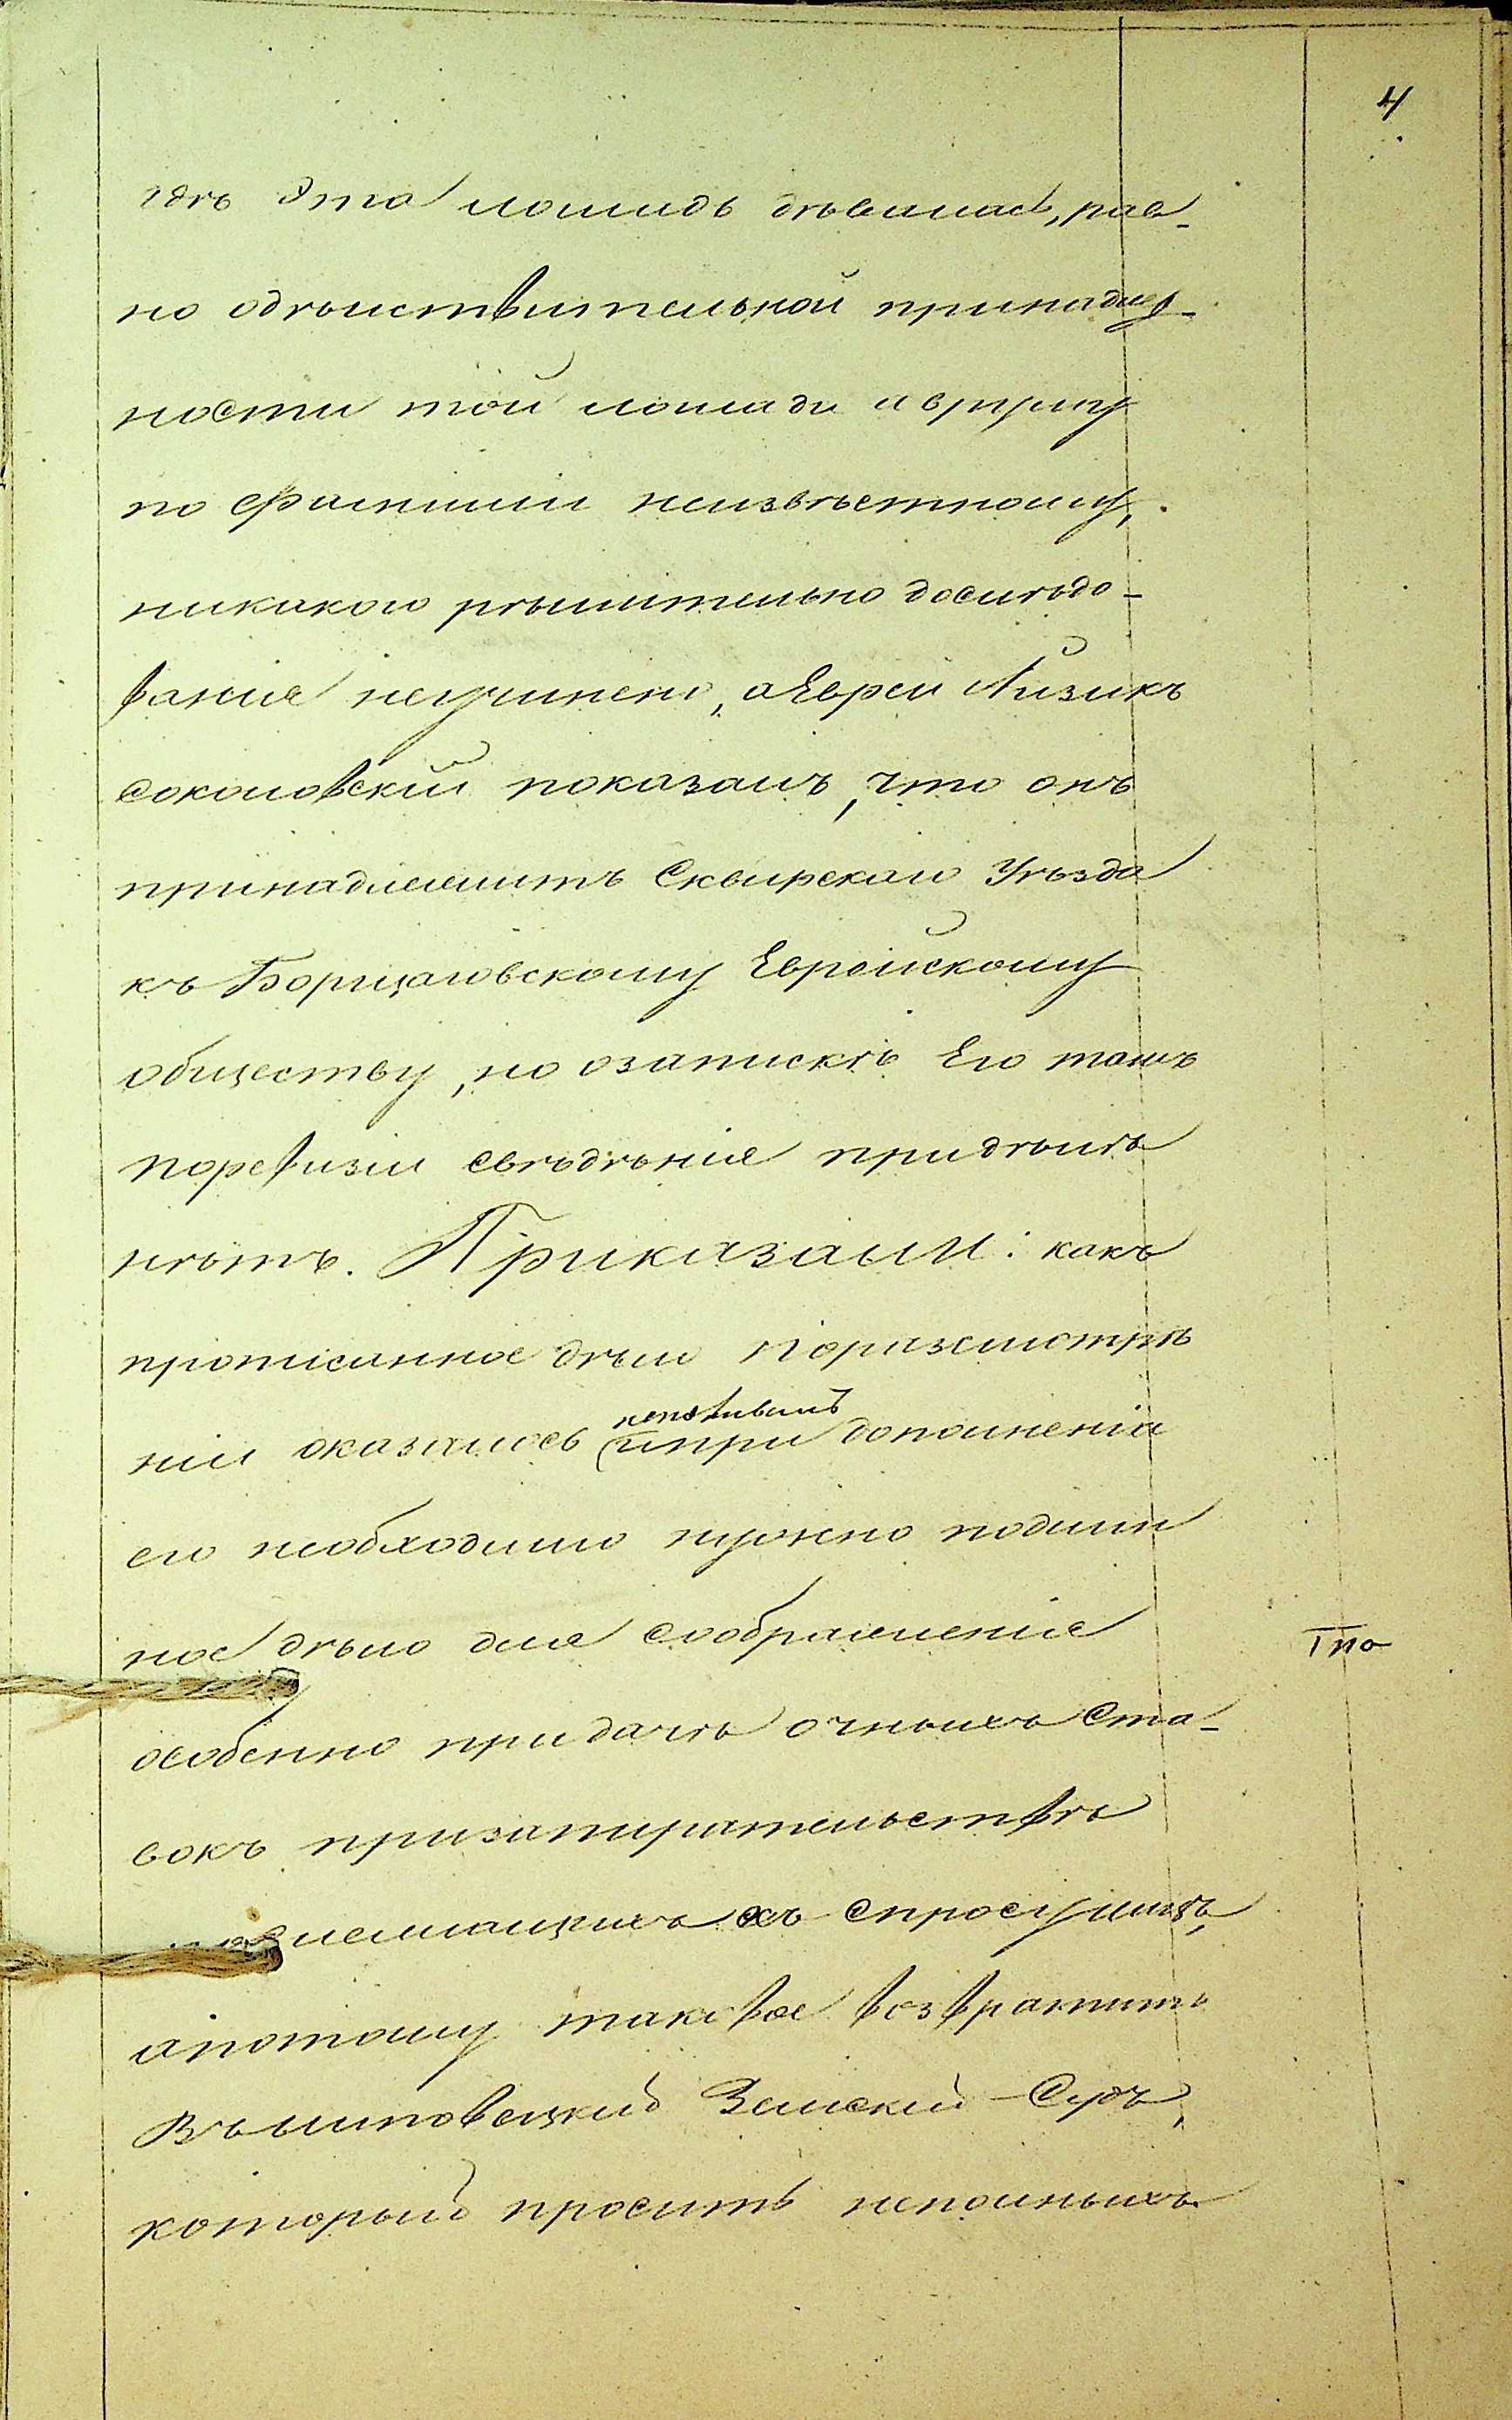 4
гдѣ эта лошадь дѣвалась, рав-
но одѣйствительной принадле-
ности той лошади еврею
по фамиліи неизвѣстному,
никакого рѣшительно дослѣдо-
ванія неучинено, а Еврей Айзикъ
Соколовскій показалъ, что онъ
принадлежитъ Сквирскаго Уѣзда
къ Борщаговскому Еврейскому
обществу, но озапискѣ Его тамъ
поревизіи свѣдѣнія придѣлѣ
нѣтъ. Приказали: какъ
прописанное дѣло поразсмотрѣ
ніи оказалось неполнымъ ипри дополненіи
его необходимо нужно подлин
ное дѣло для соображенія
Тпо
особенно придачѣ очныхъ Ста-
вокъ призапирательствѣ
подлежащихъ къ спросу лицъ,
апотому таковое возвратить
Въ Липовецкій Земскій Судъ,
который проситъ неполныхъ